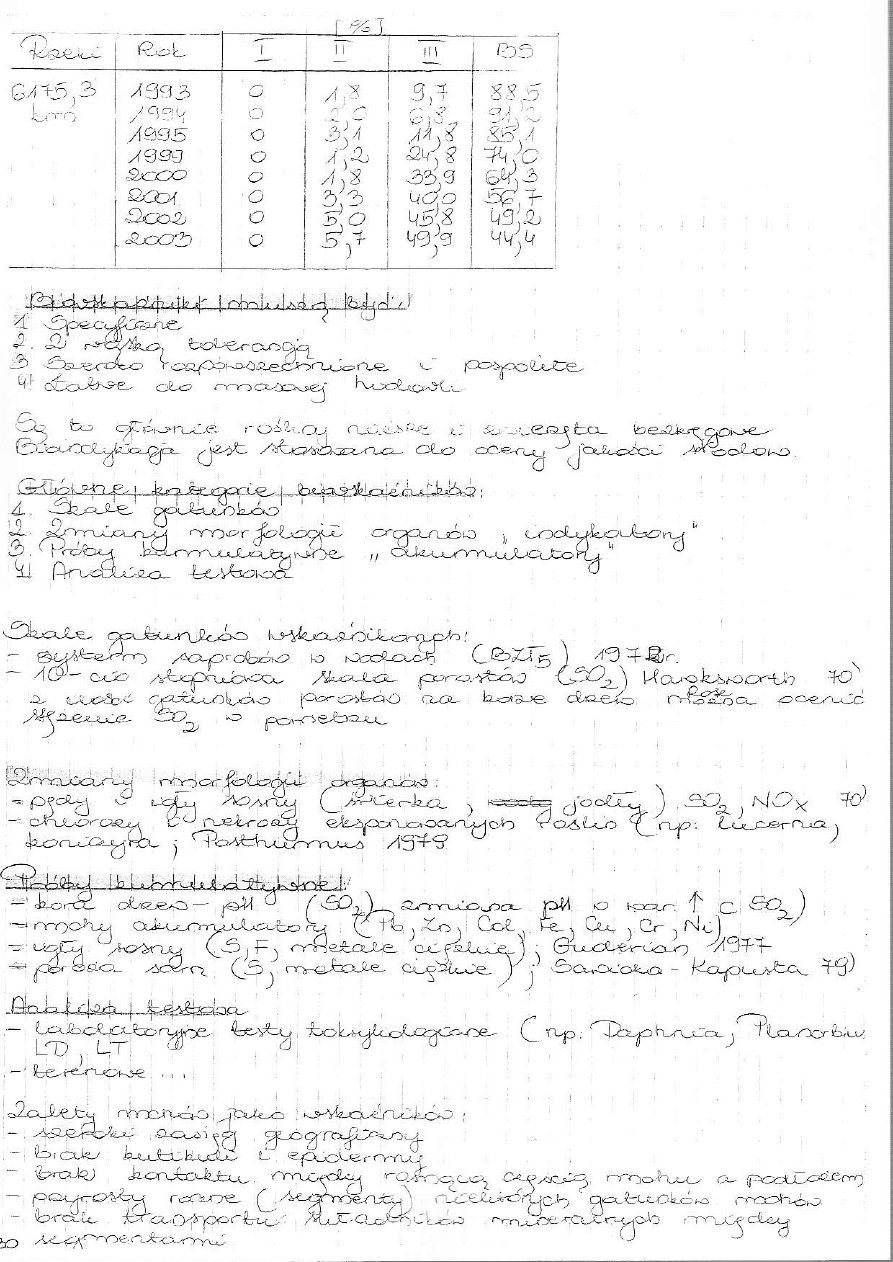 [%]
Rzeki Rok I II III BS
6175,3 1993 0 1,8 9,7 88,5
km 1994 0 2,0 6,8 91,2
1995 0 3,1 11,8 85,1
1999 0 1,2 24,8 74,0
2000 0 1,8 33,9 64,3
2001 0 3,3 40,0 56,7
2002 0 5,0 45,8 49,2
2003 0 5,7 49,9 44,4
Biowskaźniki muszą być:
1. Specyficzne
2. Z wąską tolerancją
3 Szeroko rozpowszechnione i pospolite
4) Łatwe do masowej hodowli
Są to głównie rośliny niższe i zwierzęta bezkręgowe
Bioindykacja jest stosowana do oceny jakości środow.
Główne kategorie biowskaźników:
1. Skale gatunków
2. Zmiany morfologii organów „indykatory"
3. Próby kumulatywne „akumulatory"
4) Analiza testowa
Skale gatunków wskaźnikowych:
- system saprobów w wodach (BZT5) 1972r.
- 10-cio stopniowa skala porostów (SO2) Hawksworth 70'
z ilości gatunków porostów na korze drzew można ocenić
stężenie SO2 w powietrzu
Zmiany morfologii organów:
- pędy i igły sosny (świerka, jodły) SO2, NOx 70'
- chlorozy i nekrozy eksponowanych roślin (np: lucerna,
koniczyna; Posthumus 1979
Próby kumulatywne:
- kora drzew - pH (SO2) zmiana pH w war. ↑ c SO2)
- mchy akumulatory (Pb, Zn, Cd, Fe, Cu, Cr, Ni)
- igły sosny (S, F, metale ciężkie); Guderian 1977
- poroża sarn (S, metale ciężkie); Sawicka-Kapusta 79'
Analiza testowa
- laboratoryjne testy toksykologiczne (np: Daphnia, Planorbis,
LD, LT
- terenowe ...
Zalety mchów jako wskaźników:
- szeroki zasięg geograficzny
- brak kutikuli i epidermy
- brak kontaktu między rosnącą częścią mchu a podłożem
- przyrosty roczne (segmenty) niektórych gatunków mchów
- brak transportu składników mineralnych między
segmentami